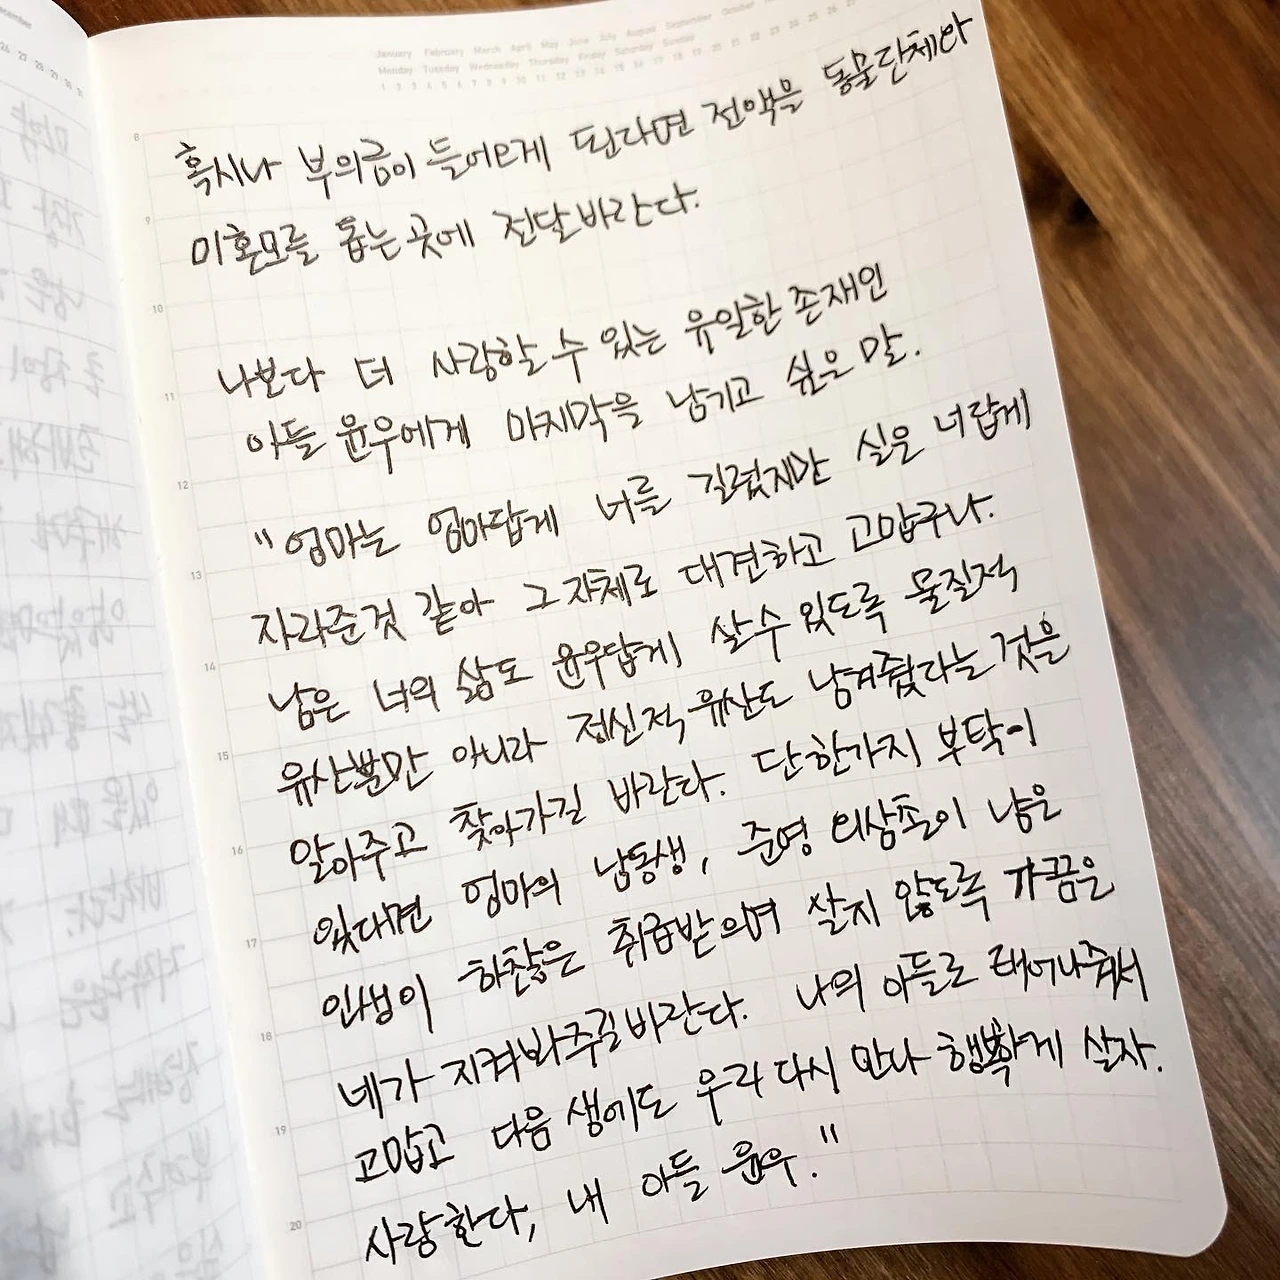 January February March April May June July August September October
Monday Tuesday Wednesday Thursday Friday Saturday Sunday
8
혹시나 부의금이 들어오게 된다면 전액을 동물단체와
9
미혼모를 돕는 곳에 전달바란다.
10
나보다 더 사랑할 수 있는 유일한 존재인
11
아들 윤우에게 마지막을 남기고 싶은 말.
12
"엄마는 엄마답게 너를 길렀지만 실은 너답게
13
자라준것 같아 그 자체로 대견하고 고맙구나.
14
남은 너의 삶도 윤우답게 살 수 있도록 물질적
15
유산뿐만 아니라 정신적 유산도 남겨줬다는 것을
16
알아주고 찾아가길 바란다. 단 한가지 부탁이
17
있다면 엄마의 남동생, 준영 외삼촌이 남은
인생이 하찮은 취급받으며 살지 않도록 가끔은
18
네가 지켜봐주길 바란다. 나의 아들로 태어나줘서
19
고맙고 다음 생에도 우리 다시 만나 행복하게 살자.
20
사랑한다, 내 아들 윤우."